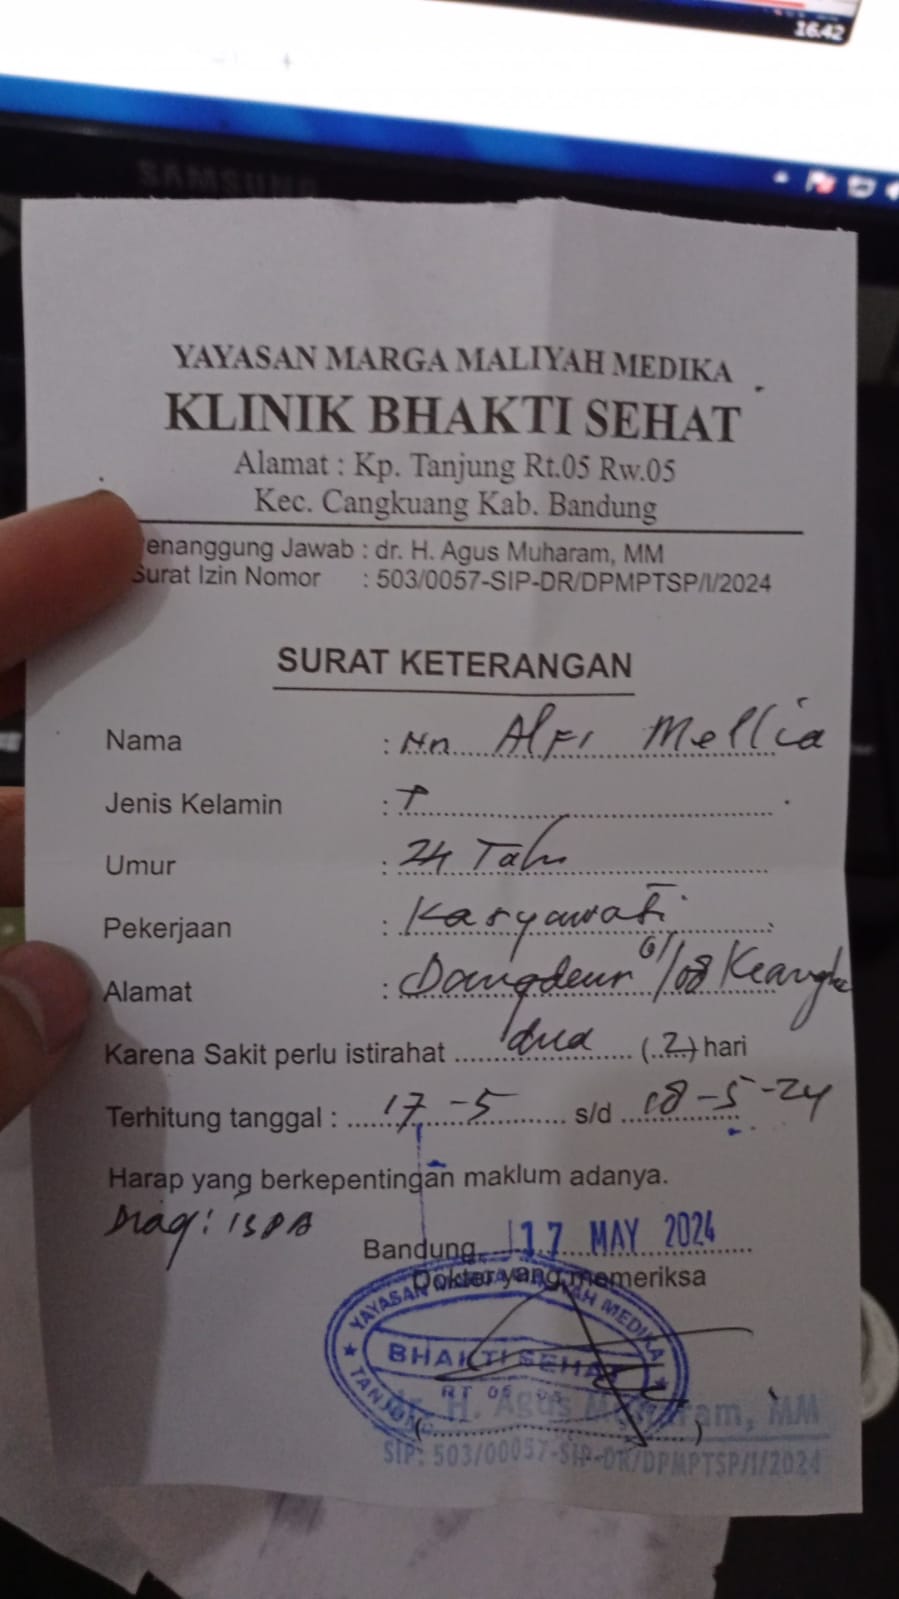 16.42
SAMSUNG
YAYASAN MARGA MALIYAH MEDIKA
KLINIK BHAKTI SEHAT
Alamat : Kp. Tanjung Rt.05 Rw.05
Kec. Cangkuang Kab. Bandung
enanggung Jawab : dr. H. Agus Muharam, MM
Surat Izin Nomor : 503/0057-SIP-DR/DPMPTSP/I/2024
SURAT KETERANGAN
Nama : Nn Alfi Mellia
Jenis Kelamin : P
Umur : 24 Tahn
Pekerjaan : Karyawati
Alamat : Dangdeur 01/08
Karena Sakit perlu istirahat dua (2) hari
Terhitung tanggal : 17-5 s/d 18-5-24
Harap yang berkepentingan maklum adanya.
Diag: ISPA
Bandung, 17 MAY 2024
Dokter yang memeriksa
YAYASAN MALIYAH MEDIKA
BHAKTI SEHAT
RT 05 05
TANJUNG
dr. H. Agus Muharam, MM
SIP: 503/00057-SIP-DR/DPMPTSP/I/2024